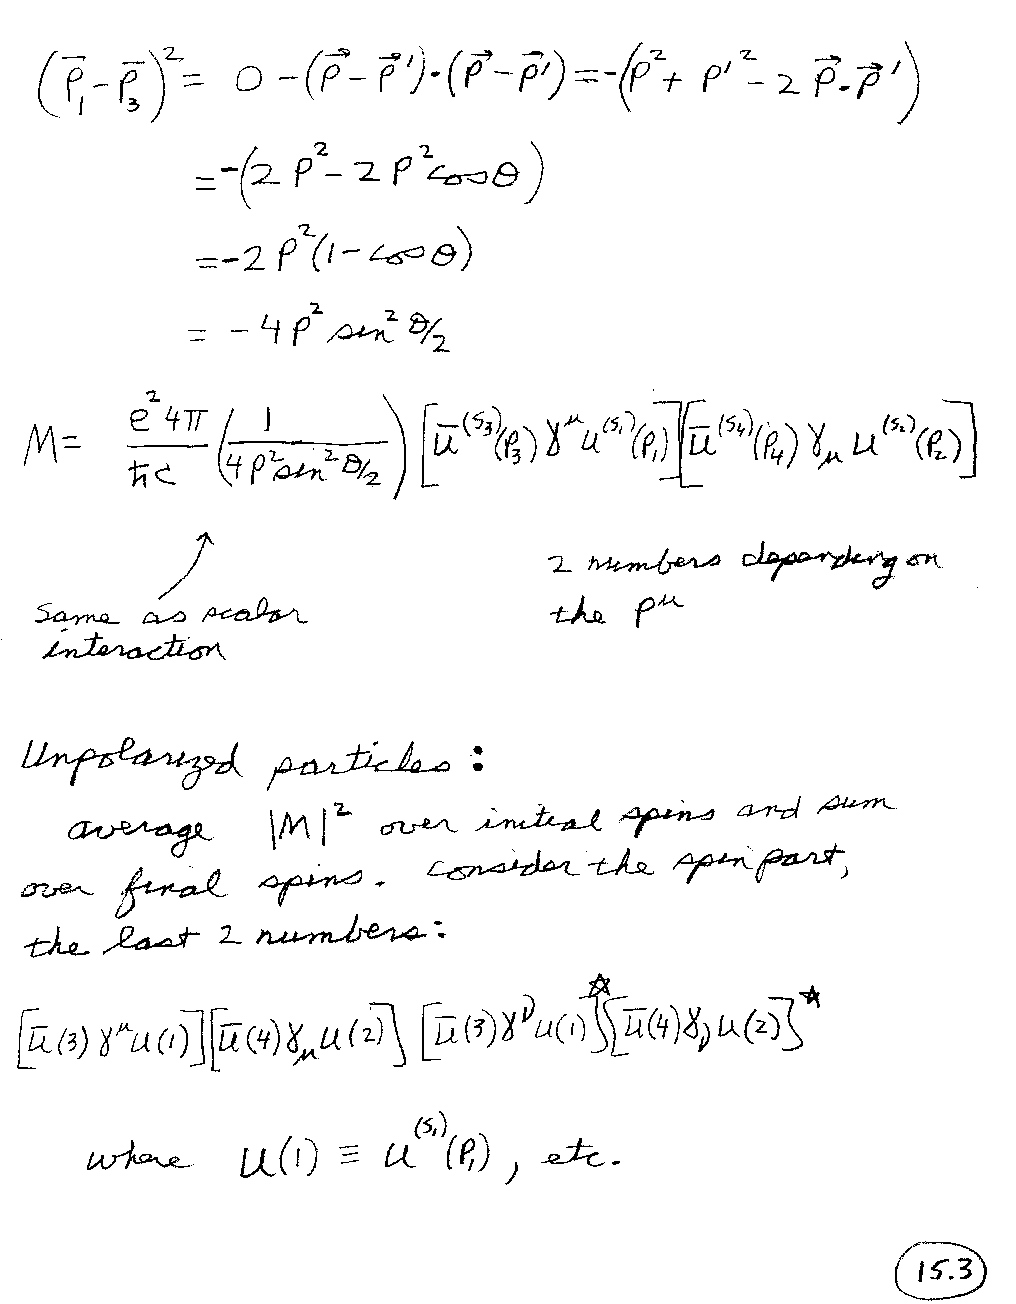 (p̄₁ - p̄₃)² = 0 - (p⃗ - p⃗')·(p⃗ - p⃗') = -(p² + p'² - 2 p⃗·p⃗')
= -(2p² - 2p² cos θ)
= -2p²(1 - cos θ)
= -4p² sin² θ/2
M = e²4π/ħc (1/4p² sin² θ/2) [ū^(s₃)(p₃) γ^μ u^(s₁)(p₁)][ū^(s₄)(p₄) γ_μ u^(s₂)(p₂)]
same as scalar
interaction
2 numbers depending on
the p^μ
Unpolarized particles:
average |M|² over initial spins and sum
over final spins. Consider the spin part,
the last 2 numbers:
[ū(3) γ^μ u(1)][ū(4) γ_μ u(2)] [ū(3) γ^ν u(1)]*[ū(4) γ_ν u(2)]*
where u(1) ≡ u^(s₁)(p₁), etc.
15.3